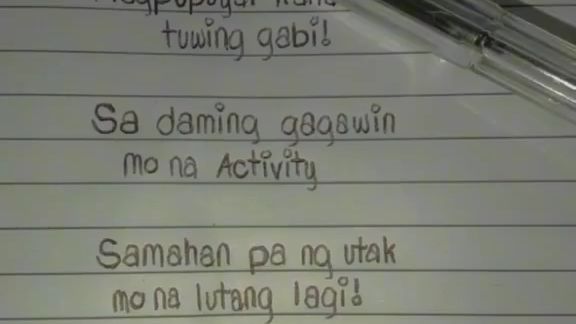 tuwing gabi!
Sa daming gagawin
mo na Activity
Samahan pa ng utak
mo na lutang lagi!